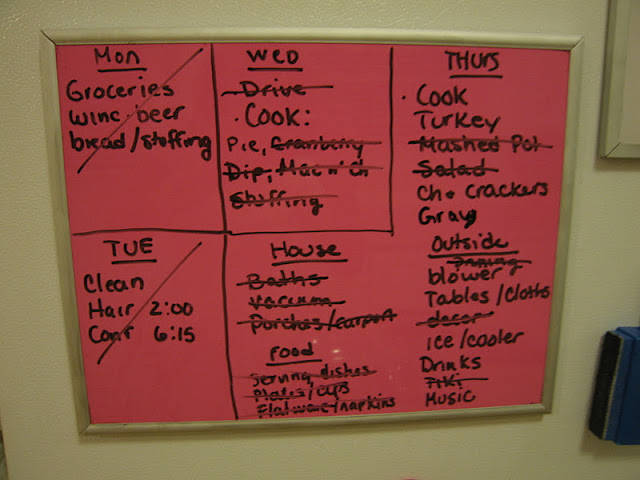 Mon
Groceries
wine · beer
bread/stuffing
TUE
Clean
Hair 2:00
6:15
WED
Drive
· Cook:
Pie, Cranberry
Dip, Mac n' Ch
Stuffing
House
Baths
Vacuum
Porches/carport
Food
Serving dishes
Plates/cups
Flatware/napkins
THURS
· Cook
Turkey
Mashed Pot
Salad
Ch + Crackers
Gravy
Outside
blower
Tables/Cloths
decor
ice/cooler
Drinks
Tiki
Music